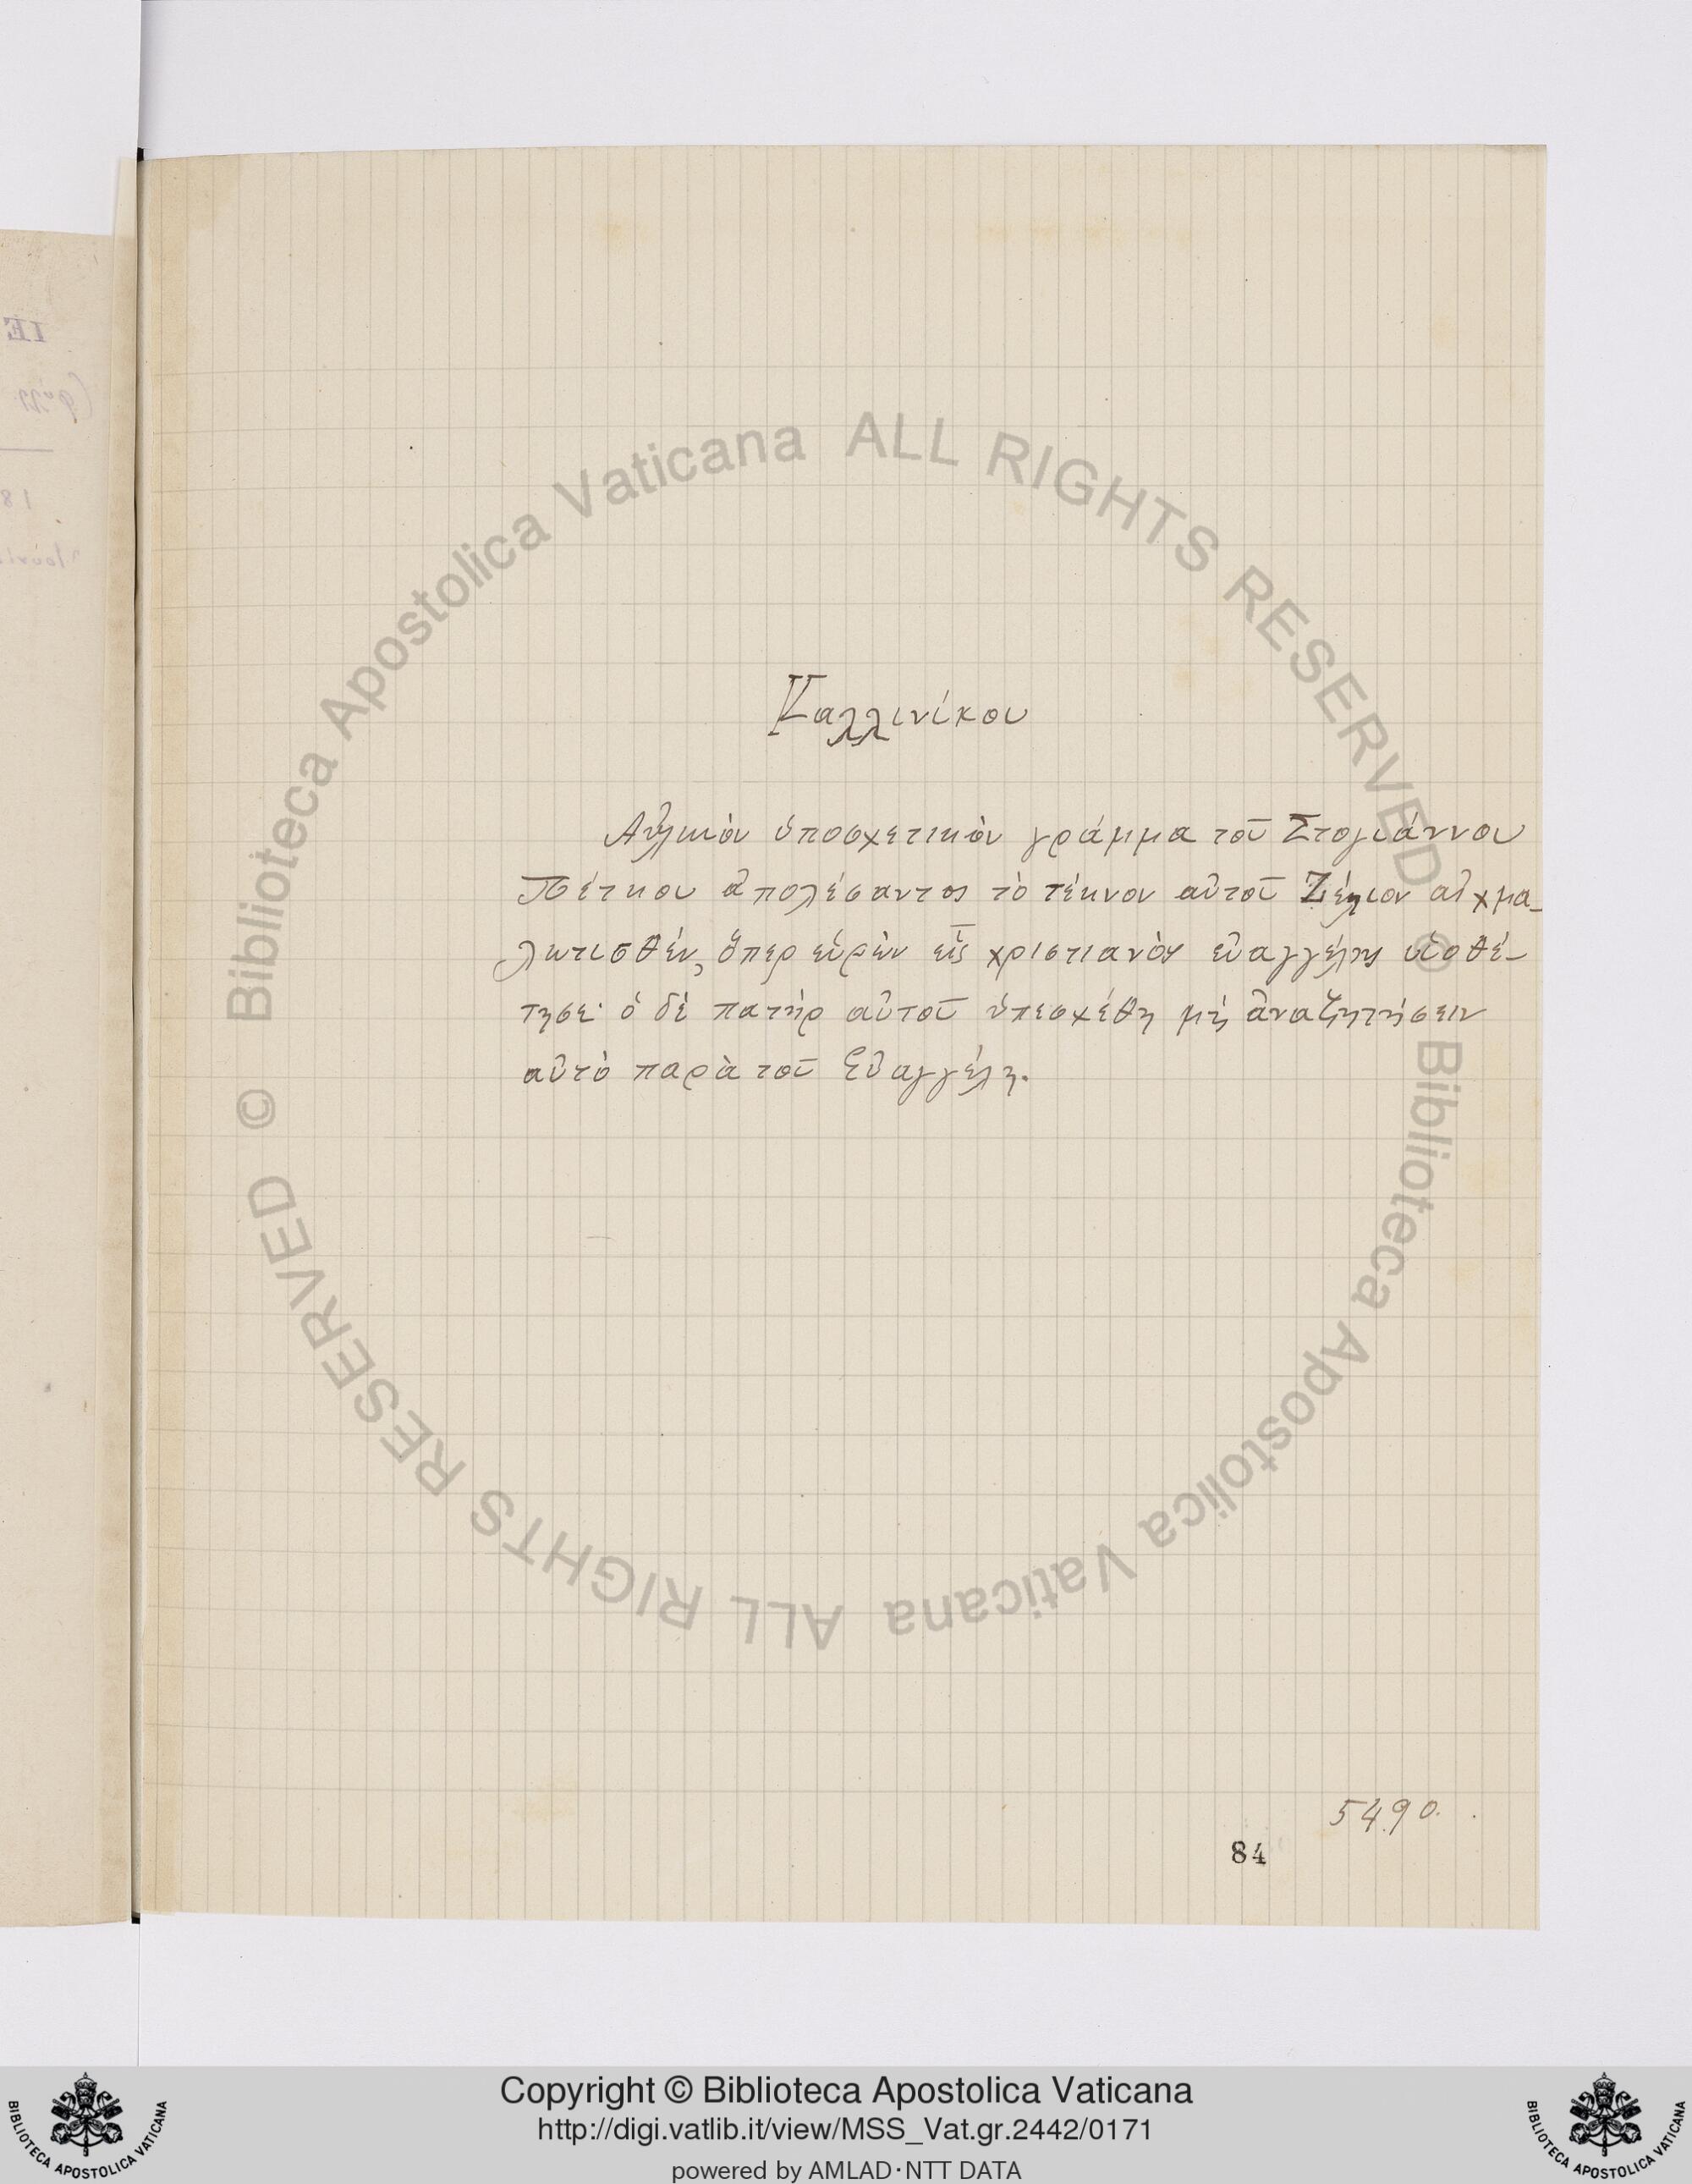 Καλλινίκου
Αὐλικὸν ὑποσχετικὸν γράμμα τοῦ Στογιάννου
Πέτκου ἀπολέσαντος τὸ τέκνον αὐτοῦ αἰχμα-
λωτισθέν, ὅπερ εὑρὼν εἷς χριστιανὸς εὐαγγέλης υἱοθέ-
τησε· ὁ δὲ πατὴρ αὐτοῦ ὑπεσχέθη μὴ ἀναζητήσειν
αὐτὸ παρὰ τοῦ Εὐαγγέλη.
5490.
84
Biblioteca Apostolica Vaticana ALL RIGHTS RESERVED ©
Biblioteca Apostolica Vaticana ALL RIGHTS RESERVED ©
Copyright © Biblioteca Apostolica Vaticana
http://digi.vatlib.it/view/MSS_Vat.gr.2442/0171
powered by AMLAD·NTT DATA
BIBLIOTECA APOSTOLICA VATICANA
BIBLIOTECA APOSTOLICA VATICANA